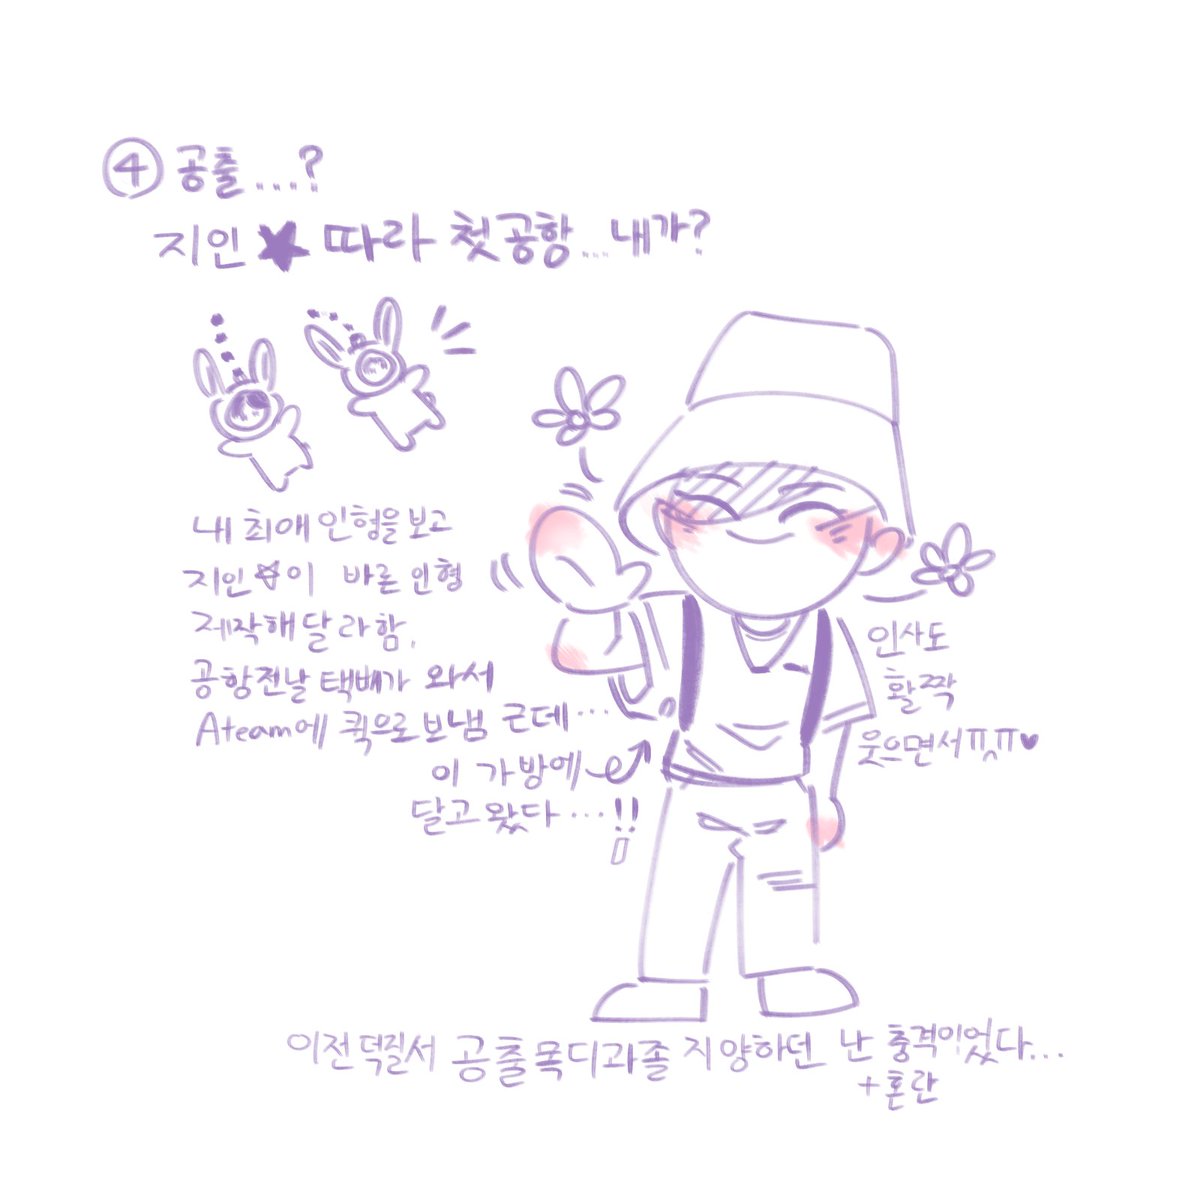 ④ 공출...?
지인★ 따라 첫공항... 내가?
내 최애 인형을 보고
지인☆이 바른 인형
제작해달라함.
공항전날 택배가 와서
Ateam에 퀵으로 보냄 근데...
이 가방에
달고왔다...!!
인사도
활짝
웃으면서ㅠㅅㅠ♥
이전덕질서 공출목디과졸 지양하던 난 충격이었다...
+혼란